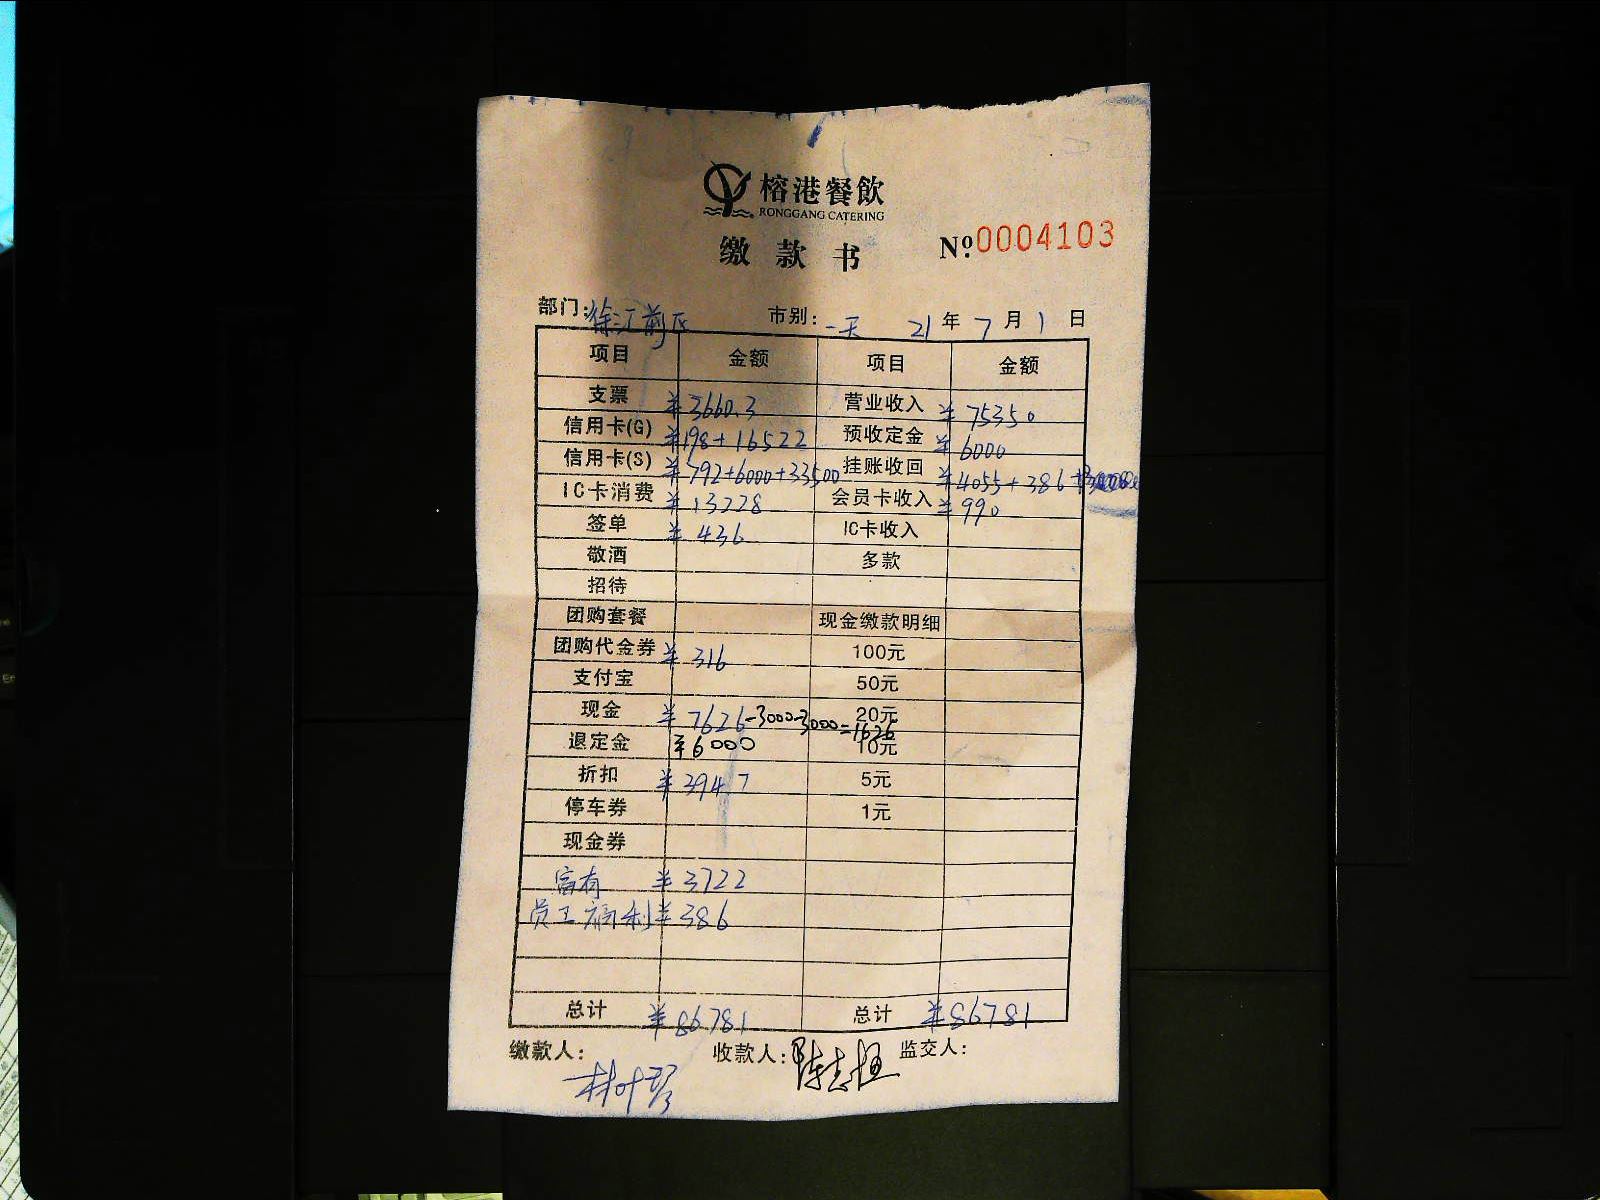 榕港餐飲
RONGGANG CATERING
缴款书 No.0004103
部门: 徐汇前区 市别: 一天 21年7月1日
项目 金额 项目 金额
支票 ¥3660.3 营业收入 ¥75350
信用卡(G) ¥198+16522 预收定金 ¥6000
信用卡(S) ¥792+6000+33500 挂账收回 ¥4055+386
IC卡消费 ¥13228 会员卡收入 ¥990
签单 ¥436 IC卡收入
敬酒 多款
招待
团购套餐 现金缴款明细
团购代金券 ¥316 100元
支付宝 50元
现金 ¥7626-3000-3000=1626 20元
退定金 ¥6000 10元
折扣 ¥394.7 5元
停车券 1元
现金券
富有 ¥3722
员工福利 ¥386
总计 ¥86781 总计 ¥86781
缴款人: 林叶琴 收款人: 陈志恒 监交人: